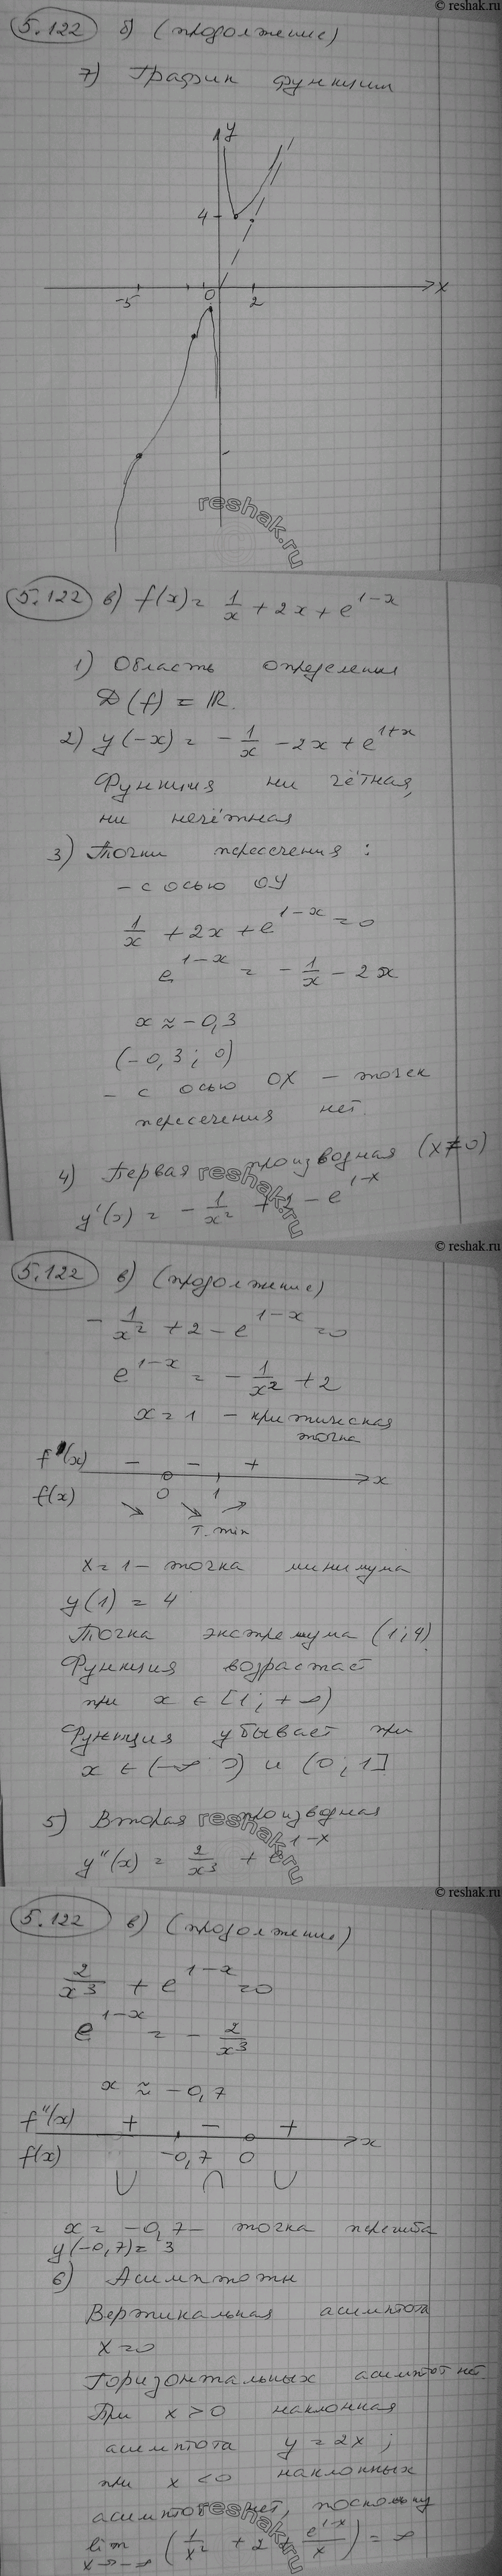 © reshak.ru
5.122 б) (продолжение)
7) График функции
y
4
-5 0 2 x
reshak.ru
5.122 в) f(x) = 1/x + 2x + e^(1-x)
1) Область определения
D(f) = ℝ.
2) y(-x) = -1/x - 2x + e^(1+x)
Функция ни чётная,
ни нечётная
3) Точки пересечения :
- с осью OY
1/x + 2x + e^(1-x) = 0
e^(1-x) = -1/x - 2x
x ≈ -0,3
(-0,3 ; 0)
- с осью OX - точек
пересечения нет.
4) Первая производная (x≠0)
y'(x) = -1/x² + 2 - e^(1-x)
reshak.ru
© reshak.ru
5.122 в) (продолжение)
-1/x² + 2 - e^(1-x) = 0
e^(1-x) = -1/x² + 2
x = 1 - критическая
точка
f'(x) - - + x
f(x) 0 1
т. min
x = 1 - точка минимума
y(1) = 4
Точка экстремума (1;4)
Функция возрастает
при x ∈ [1; +∞)
Функция убывает при
x ∈ (-∞ 0) и (0; 1]
5) Вторая производная
y''(x) = 2/x³ + e^(1-x)
reshak.ru
© reshak.ru
5.122 в) (продолжение)
2/x³ + e^(1-x) = 0
e^(1-x) = -2/x³
x ≈ -0,7
f''(x) + - + x
f(x) -0,7 0
x = -0,7 - точка перегиба
y(-0,7) = 3
6) Асимптоты
Вертикальная асимптота
x=0
Горизонтальных асимптот нет
При x > 0 наклонная
асимптота y = 2x ;
при x < 0 наклонных
асимптот нет, поскольку
lim x→-∞ (1/x² + 2 + e^(1-x)/x) = ∞
reshak.ru